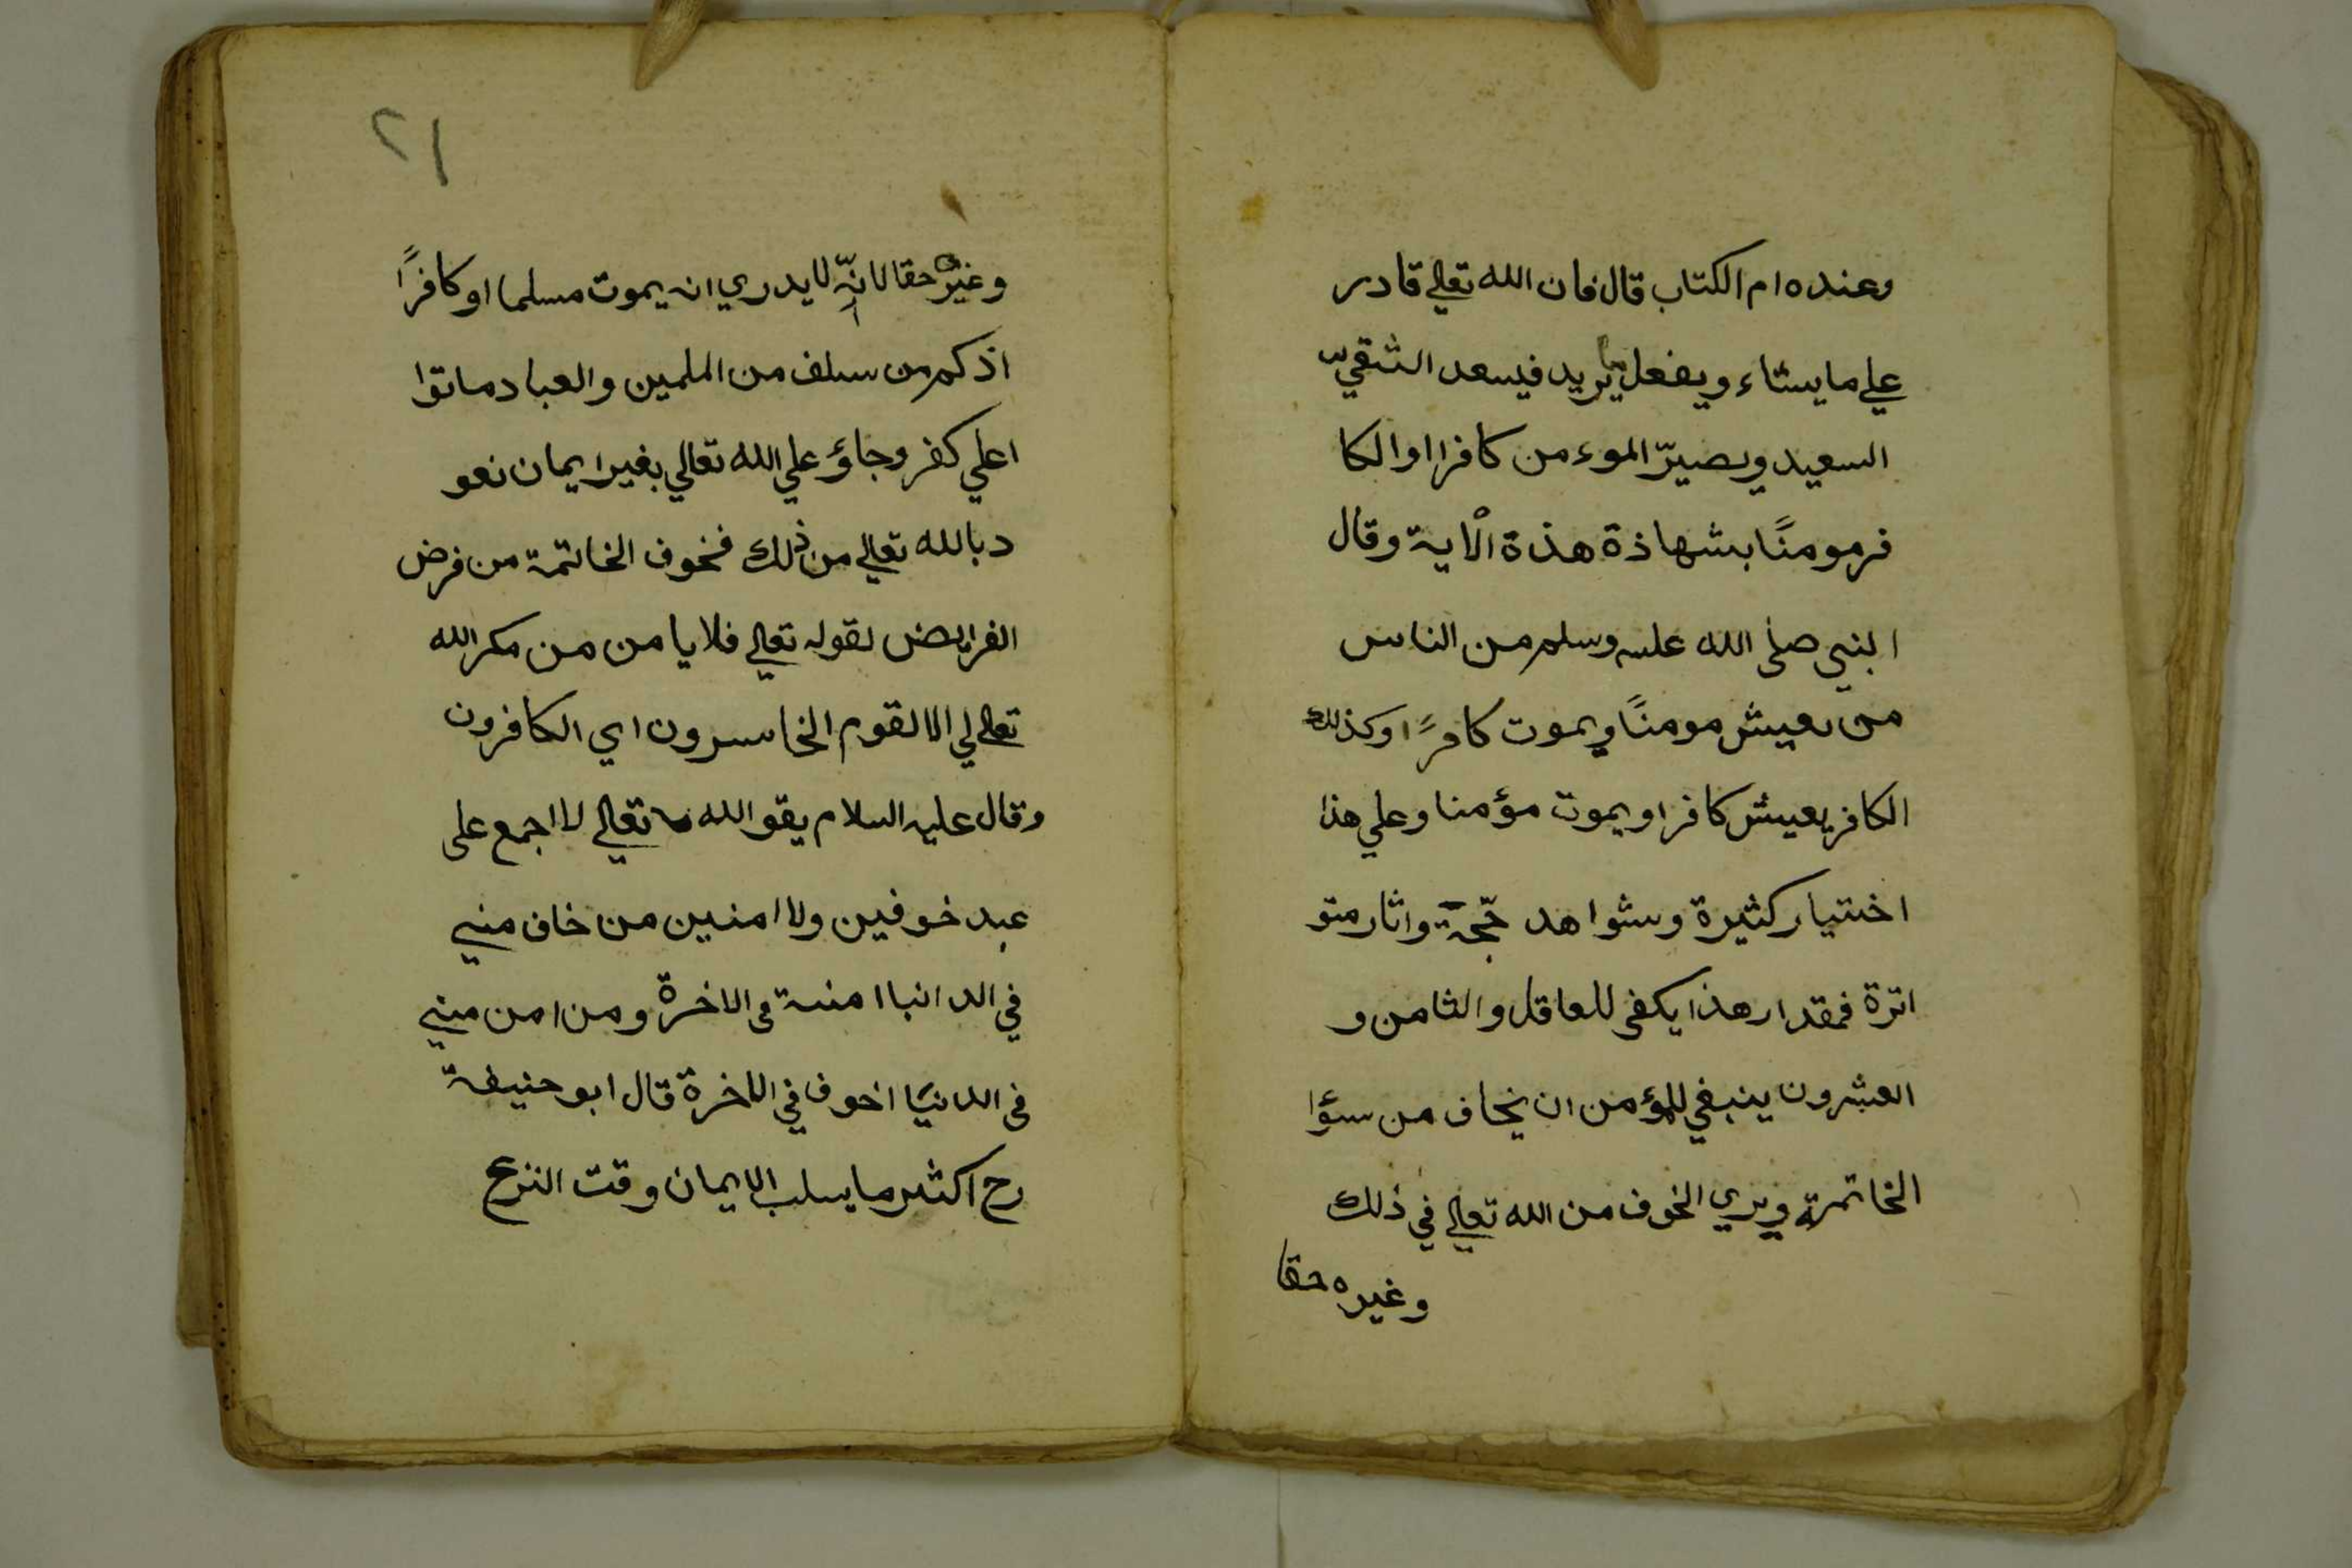 وعنده ام الكتاب قال فان الله تعالى قادر
علي ما يشاء ويفعل ما يريد فيسعد الشقيّ
السعيد ويصيرّ الموء من كافرا اوالكا
فر مومنًا بشهاذة هذة الاية وقال
النبي صلى الله عليه وسلم من الناس
من يعيش مومنًا ويموت كافرًا وكذلك
الكافر يعيش كافرا ويموت مؤمنا وعلي هذا
اختيار كثيرة وشواهد حجّة واثار متو
اترة فمقدار هذا يكفى للعاقل والثامن و
العشرون ينبغي للمؤمن ان يخاف من سؤا
الخاتمة ويري الخوف من الله تعالى في ذلك
وغيره حقا
٢١
وغيره حقا لانّه لا يدري انه يموت مسلما او كافرًا
اذكم من سلف من الملمين والعباد ماتوا
اعلي كفر وجاؤ علي الله تعالي بغير ايمان نعو
د بالله تعالى من ذلك فخوف الخاتمة من فرض
الفرايض لقوله تعالى فلا يامن من مكر الله
تعالى الا القوم الخاسرون اي الكافرون
وقال عليه السلام يقو الله تعالى لا اجمع على
عبد خوفين ولا امنين من خاف مني
في الد انبا امنته فى الاخرة ومن امن مني
فى الدنيَا اخوف في الاخرة قال ابو حنيفة
رح اكثر ما يسلب الايمان وقت النزع